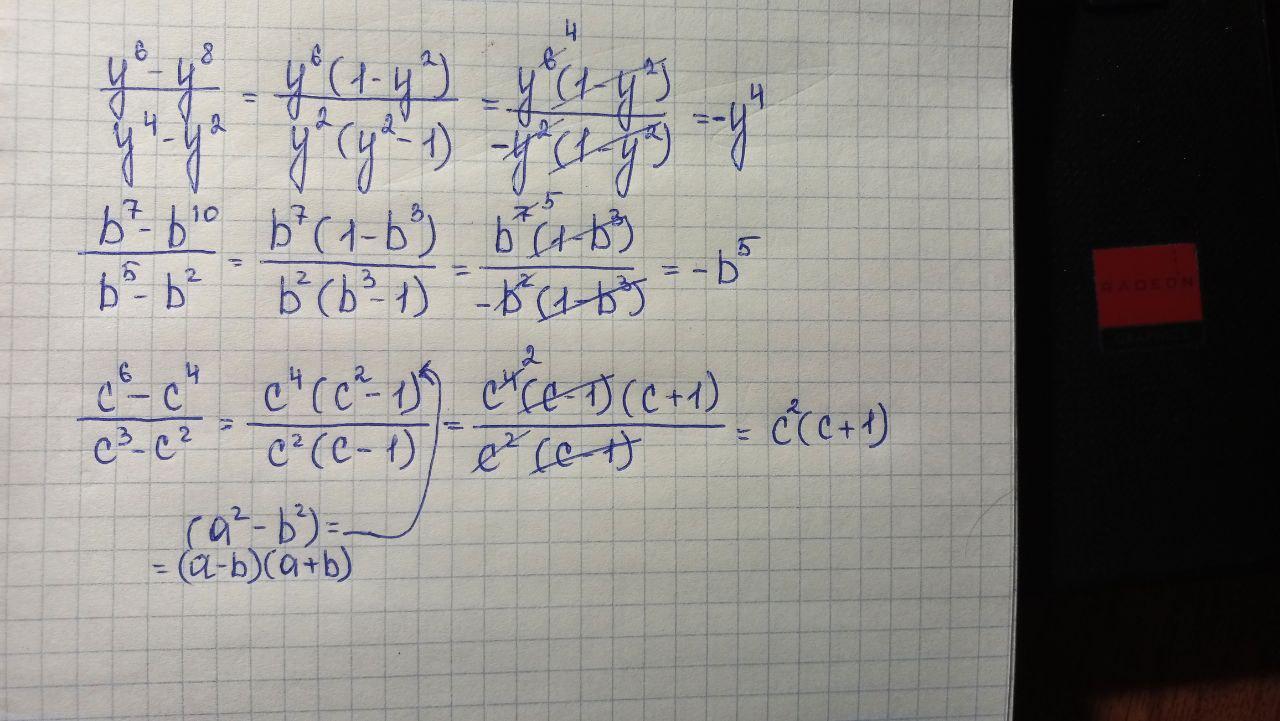 (y⁶ - y⁸)/(y⁴ - y²) = y⁶(1 - y²)/(y²(y² - 1)) = y⁶ ⁴(1 - y²)/(-y²(1 - y²)) = -y⁴
(b⁷ - b¹⁰)/(b⁵ - b²) = b⁷(1 - b³)/(b²(b³ - 1)) = b⁷ ⁵(1 - b³)/(-b²(1 - b³)) = -b⁵
(c⁶ - c⁴)/(c³ - c²) = c⁴(c² - 1)/(c²(c - 1)) = c⁴ ²(c - 1)(c + 1)/(c²(c - 1)) = c²(c + 1)
(a² - b²) =
= (a - b)(a + b)
RADEON